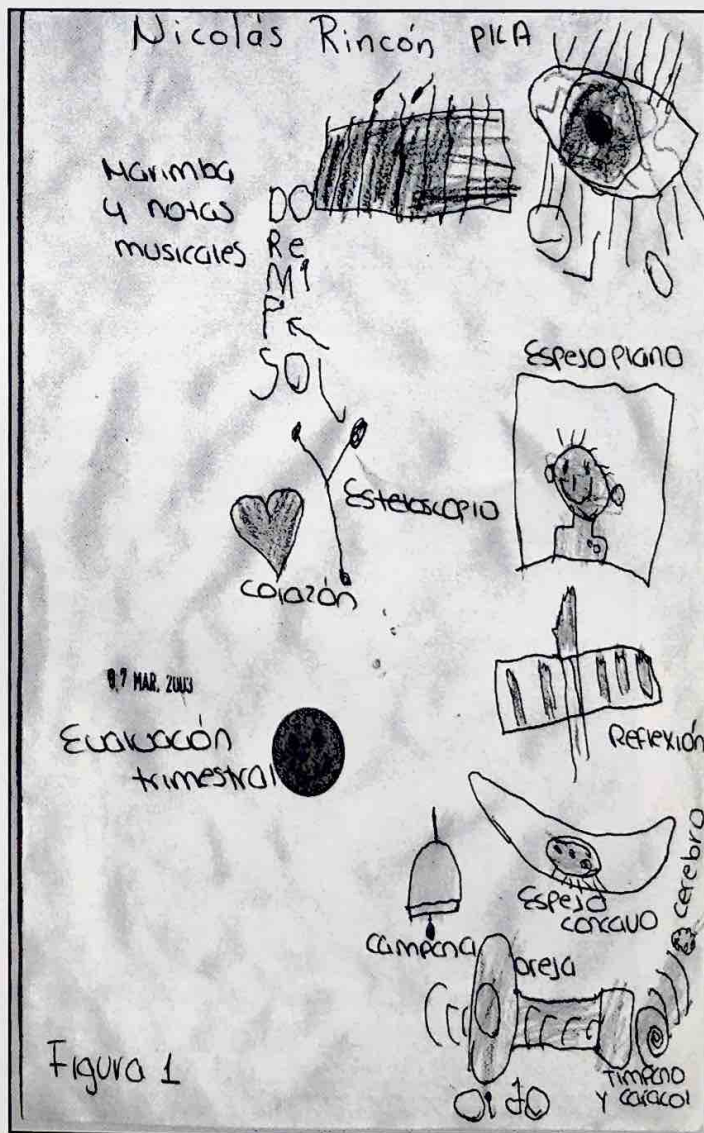 Nicolás Rincón PICA
Marimba
y notas
musicales
DO
Re
MI
F
SOL
Espejo plano
Estetoscopio
corazón
07 MAR. 2003
Reflexión
Evaluación
trimestral
Espejo
concavo
cerebro
campana
oreja
Timpano
y caracol
OidO
Figura 1